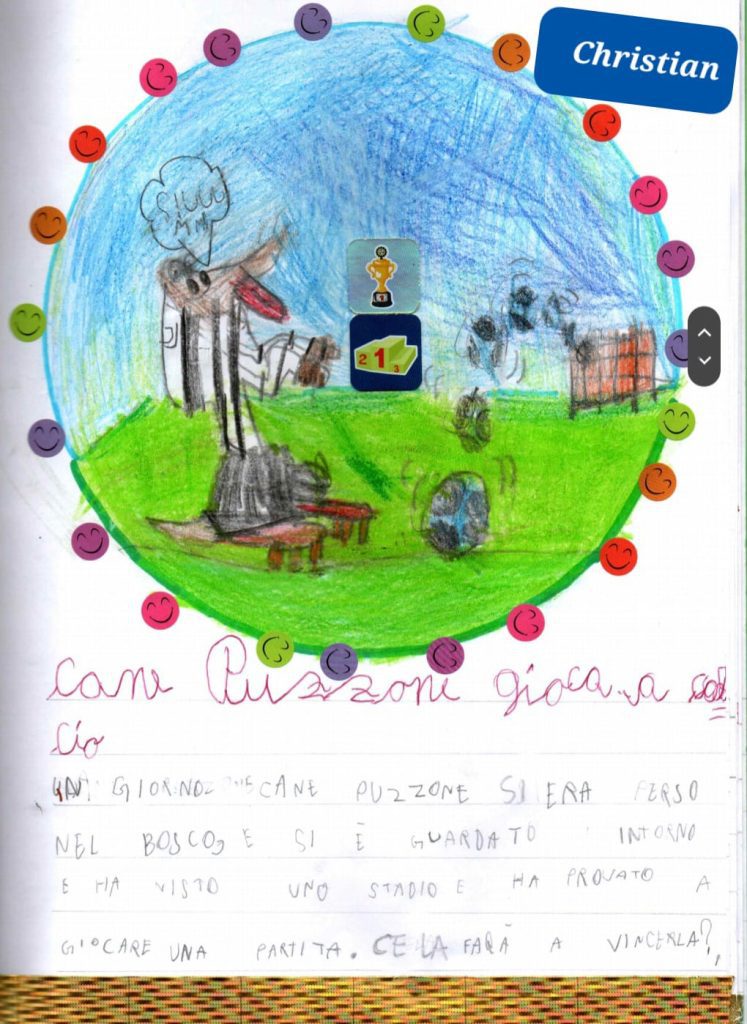 Christian
SIUUU
MM
2 1 3
cane Puzzone gioca a cal=
cio
UN GIORNO CANE PUZZONE SI ERA PERSO
NEL BOSCO, E SI È GUARDATO INTORNO
E HA VISTO UNO STADIO E HA PROVATO A
GIOCARE UNA PARTITA. CE LA FARÀ A VINCERLA?